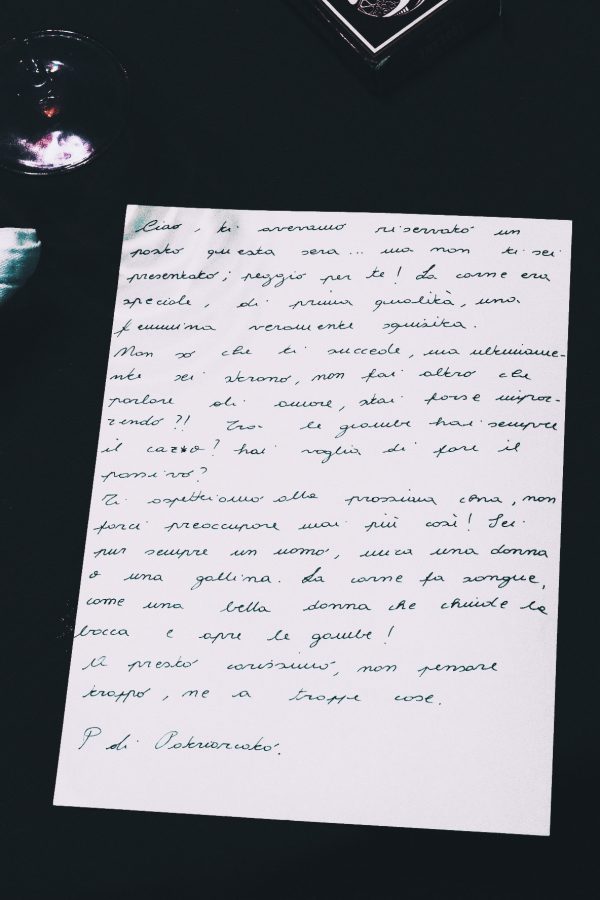 Ciao, ti avevamo riservato un
posto questa sera... ma non ti sei
presentato; peggio per te! La carne era
speciale, di prima qualità, una
femmina veramente squisita.
Non so che ti succede, ma ultimame-
nte sei strano, non fai altro che
parlare di amore, stai forse impaz-
zendo?! Tra le gambe hai sempre
il caz*o? hai voglia di fare il
passivo?
Ti aspettiamo alla prossima cena, non
farci preoccupare mai più così! Sei
pur sempre un uomo, mica una donna
o una gallina. La carne fa sangue,
come una bella donna che chiude la
bocca e apre le gambe!
A presto carissimo, non pensare
troppo, ne a troppe cose.
P di Patriarcato.